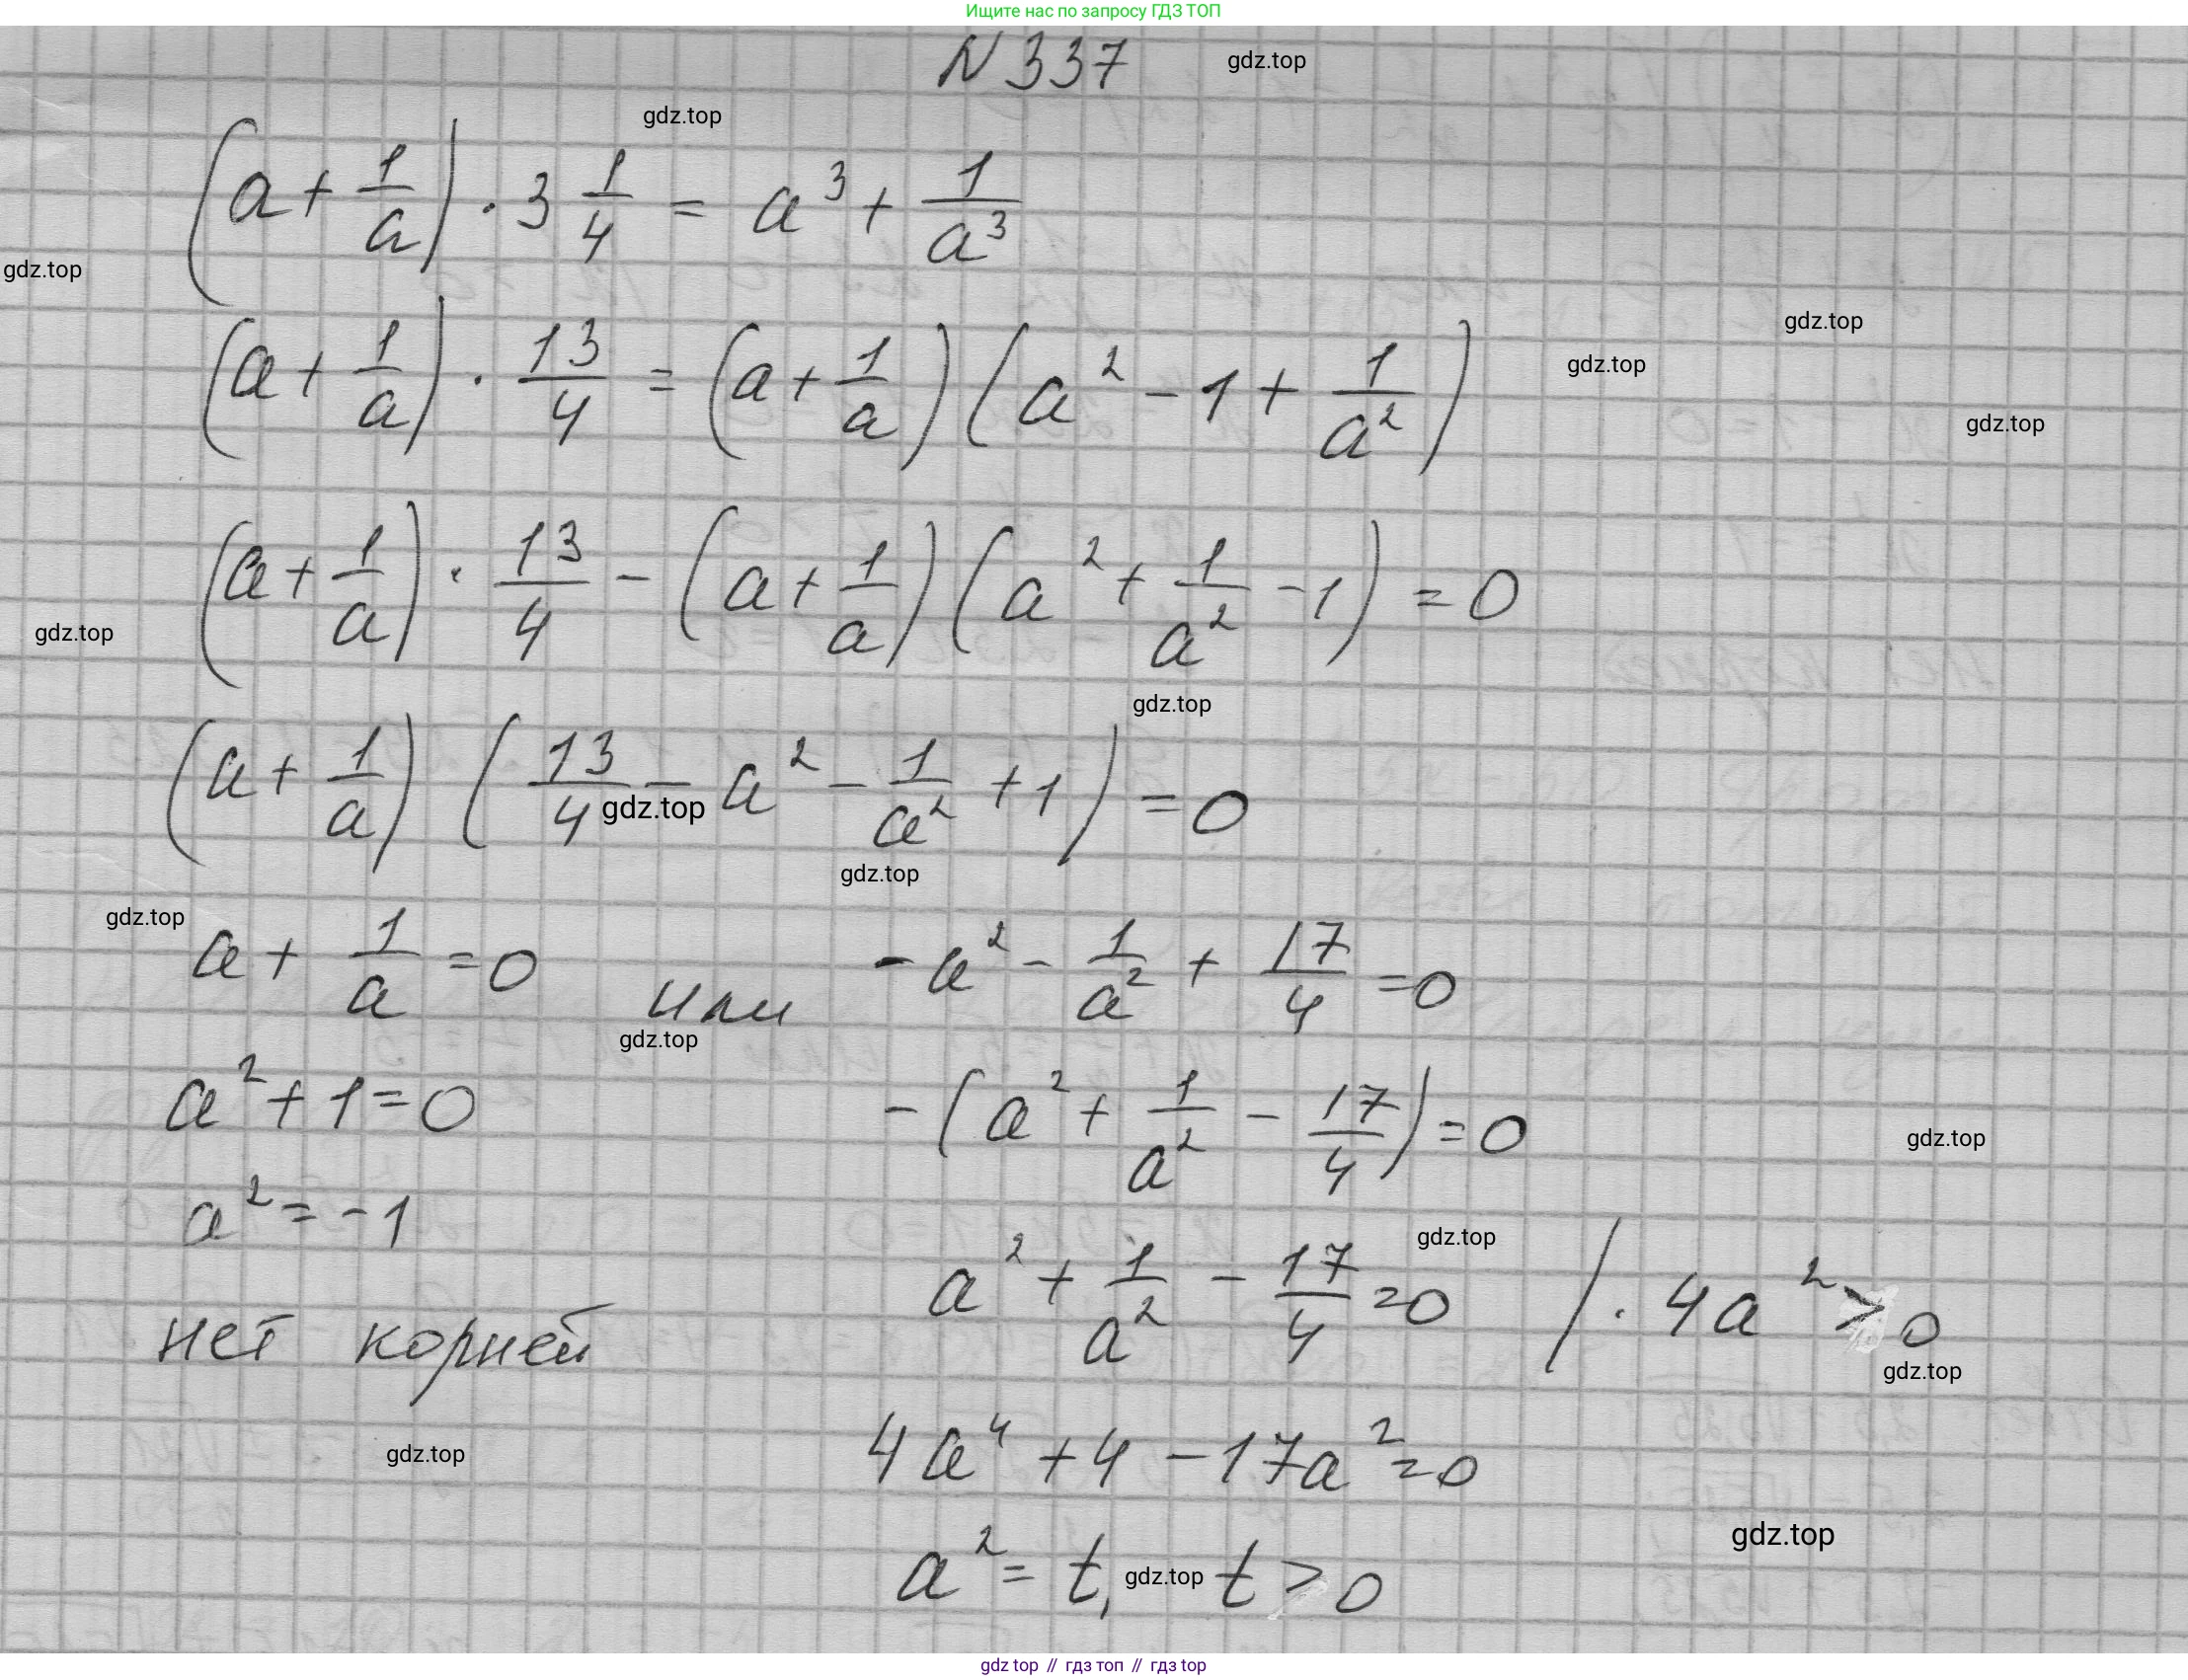 Ищите нас по запросу ГДЗ ТОП
N 337
gdz.top
gdz.top
(a + 1/a) · 3 1/4 = a³ + 1/a³
gdz.top
gdz.top
(a + 1/a) · 13/4 = (a + 1/a) (a² - 1 + 1/a²)
gdz.top
gdz.top
(a + 1/a) · 13/4 - (a + 1/a) (a² + 1/a² - 1) = 0
gdz.top
gdz.top
(a + 1/a) (13/4 - a² - 1/a² + 1) = 0
gdz.top
gdz.top
gdz.top
a + 1/a = 0 или - a² - 1/a² + 17/4 = 0
gdz.top
a² + 1 = 0 - (a² + 1/a² - 17/4) = 0
gdz.top
a² = - 1
gdz.top
a² + 1/a² - 17/4 = 0 / · 4a² > 0
нет корней
gdz.top
gdz.top
4a⁴ + 4 - 17a² = 0
gdz.top
a² = t, t > 0
gdz.top
gdz top // гдз топ // гдз top